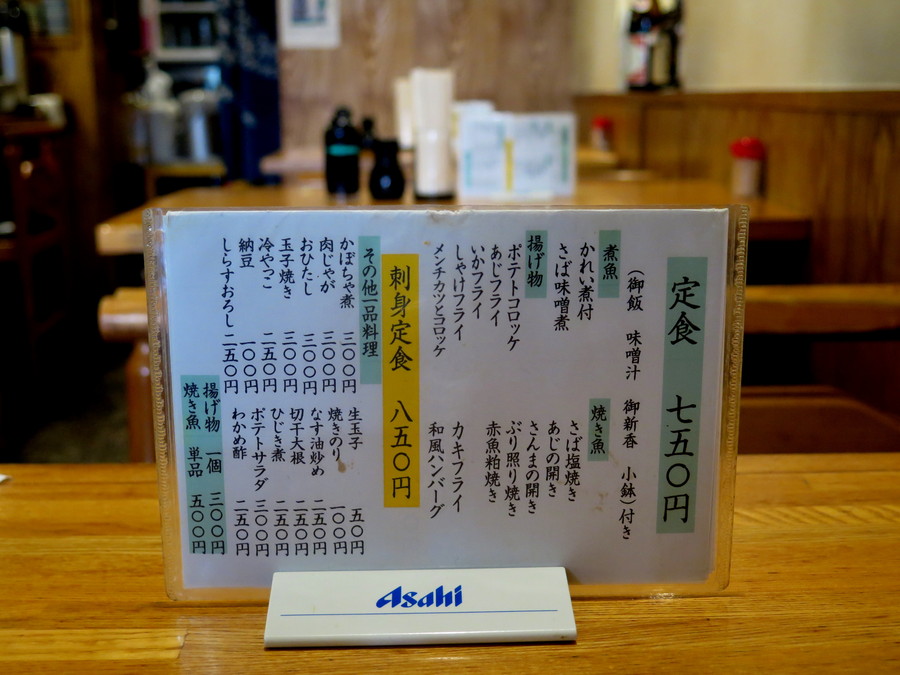 定食 七五〇円
(御飯 味噌汁 御新香 小鉢)付き
煮魚
かれい煮付
さば味噌煮
焼き魚
さば塩焼き
あじの開き
さんまの開き
ぶり照り焼き
赤魚粕焼き
揚げ物
ポテトコロッケ
あじフライ
いかフライ
しゃけフライ
メンチカツとコロッケ
カキフライ
和風ハンバーグ
刺身定食 八五〇円
その他一品料理
かぼちゃ煮 三〇〇円
肉じゃが 三〇〇円
おひたし 三〇〇円
玉子焼き 三〇〇円
冷やっこ 二五〇円
納豆 一〇〇円
しらすおろし 二五〇円
生玉子 五〇円
焼きのり 一〇〇円
なす油炒め 二五〇円
切干大根 二五〇円
ひじき煮 二五〇円
ポテトサラダ 三〇〇円
わかめ酢 二五〇円
揚げ物 一個 三〇〇円
焼き魚 単品 五〇〇円
Asahi